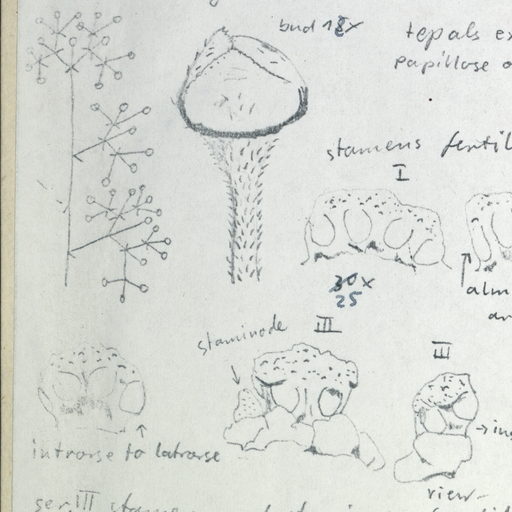 bud 18x
tepals ex
papillose o
stamens fertil
I
30x
25
alm
an
staminode
III
III
introrse to latrorse
view
ser III stamens